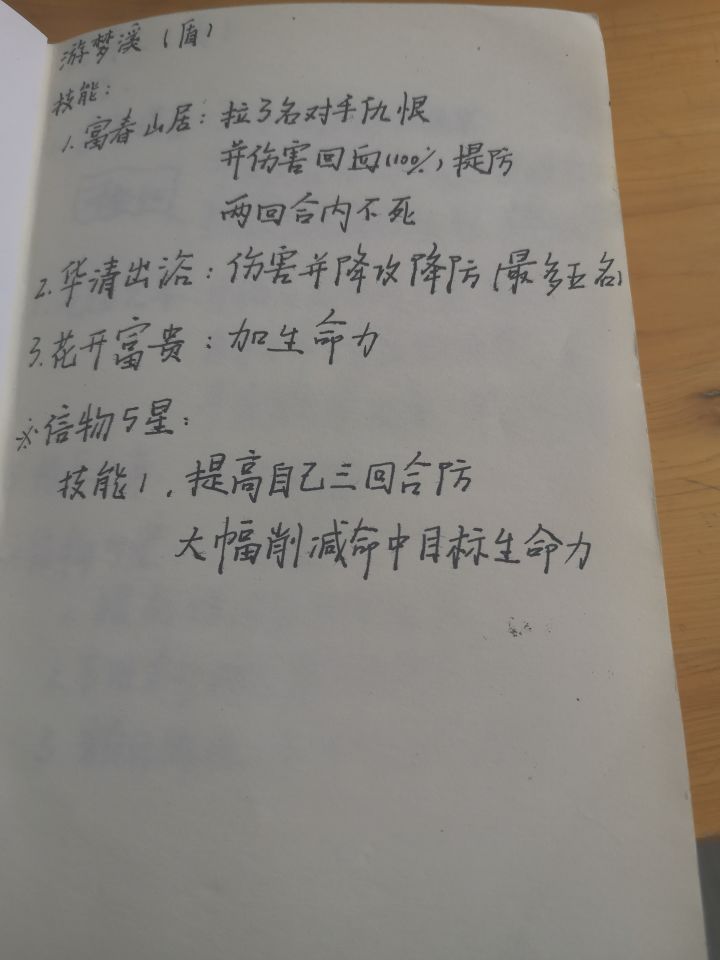 游梦溪（盾）
技能：
1.富春山居：拉3名对手仇恨
并伤害回血(100%)，提防
两回合内不死
2.华清出浴：伤害并降攻降防(最多五名)
3.花开富贵：加生命力
※信物5星：
技能1，提高自己三回合防
大幅削减命中目标生命力